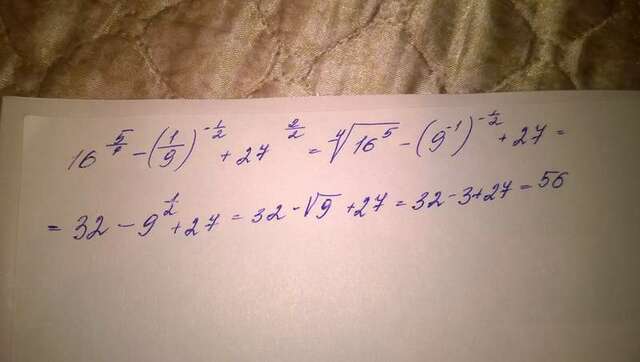 16^(5/4) - (1/9)^(-1/2) + 27^(2/2) = ∜(16^5) - (9^(-1))^(-1/2) + 27 =
= 32 - 9^(1/2) + 27 = 32 - √9 + 27 = 32 - 3 + 27 = 56